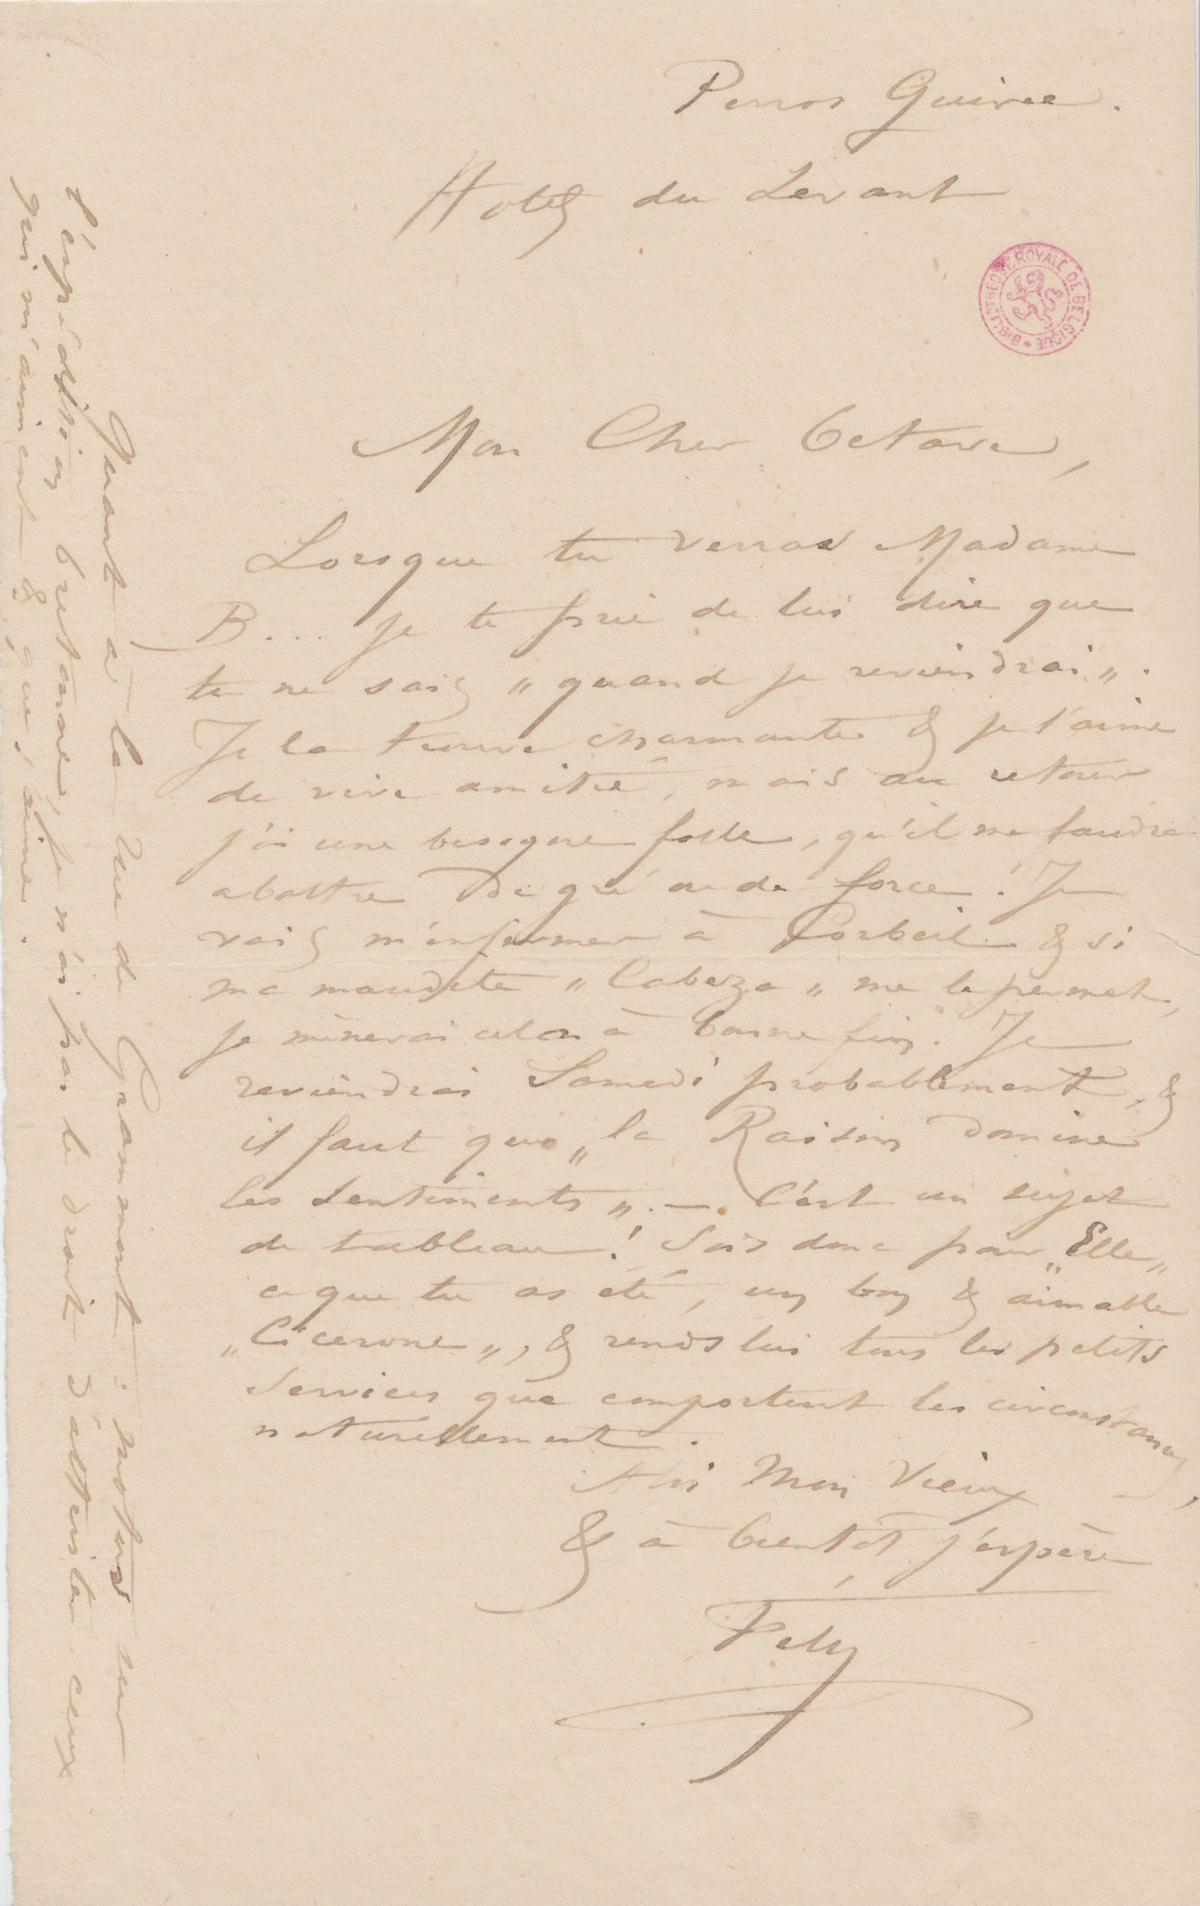 Perros Guirec.
Hotel du Levant
BIBLIOTHEQUE ROYALE DE BELGIQUE *
Mon Cher Octave,
Lorsque tu verras Madame
B... je te prie de lui dire que
tu ne sais „ quand je reviendrai „.
Je la trouve charmante & je l'aime
de vive amitié, mais au retour
j'ai une besogne folle, qu'il me faudra
abattre de gré ou de force. Je
vais m'enfermer à Corbeil & si
ma maudite „ Cabeza „ me le permet,
je mènerai cela à bonne fin. Je
reviendrai Samedi probablement, &
il faut que „ la Raison domine
les Sentiments „. — C'est un sujet
de tableau! Sois donc pour „ Elle „
ce que tu as été, un bon & aimable
„ Cicerone „, & rends lui tous les petits
services que comportent les circonstances,
naturellement.
à toi Mon Vieux
& à bientôt j'espère
Fély
Quant à la rue de Grammont: motus sur
l'expédition bretonne, je n'ai pas le droit d'attrister ceux
qui m'aiment & que j'aime.